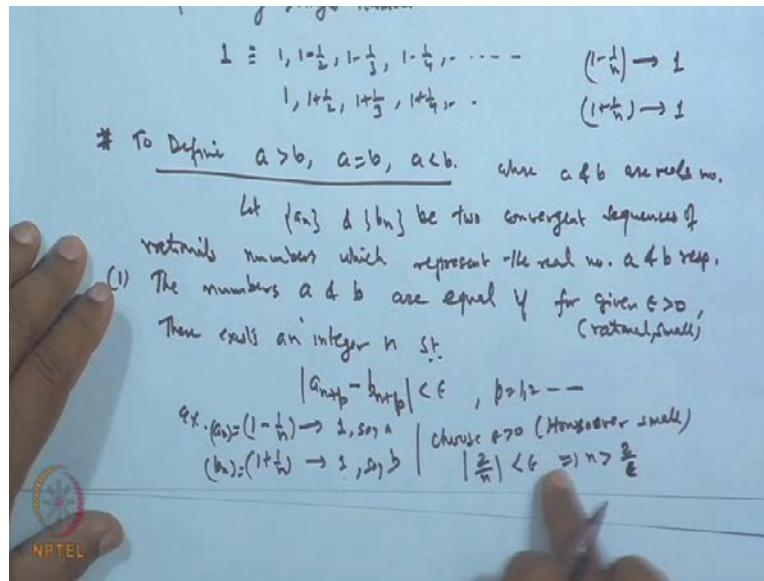 1 ≡ 1, 1-1/2, 1-1/3, 1-1/4, - ----- (1-1/n) → 1
1, 1+1/2, 1+1/3, 1+1/4, - . (1+1/n) → 1
# To Define a > b, a = b, a < b. where a & b are reals no.
Let {an} & {bn} be two convergent sequences of
rationals numbers which represent the real no. a & b resp.
(1) The numbers a & b are equal if for given ε>0,
(rational, small)
There exists an integer n st.
|a_{n+p} - b_{n+p}| < ε , p=1,2 --
ex. (an) = (1-1/n) → 1, say a | choose ε>0 (Howsoever small)
(bn) = (1+1/n) → 1, say b | |2/n| < ε ⇒ n > 2/ε
NPTEL